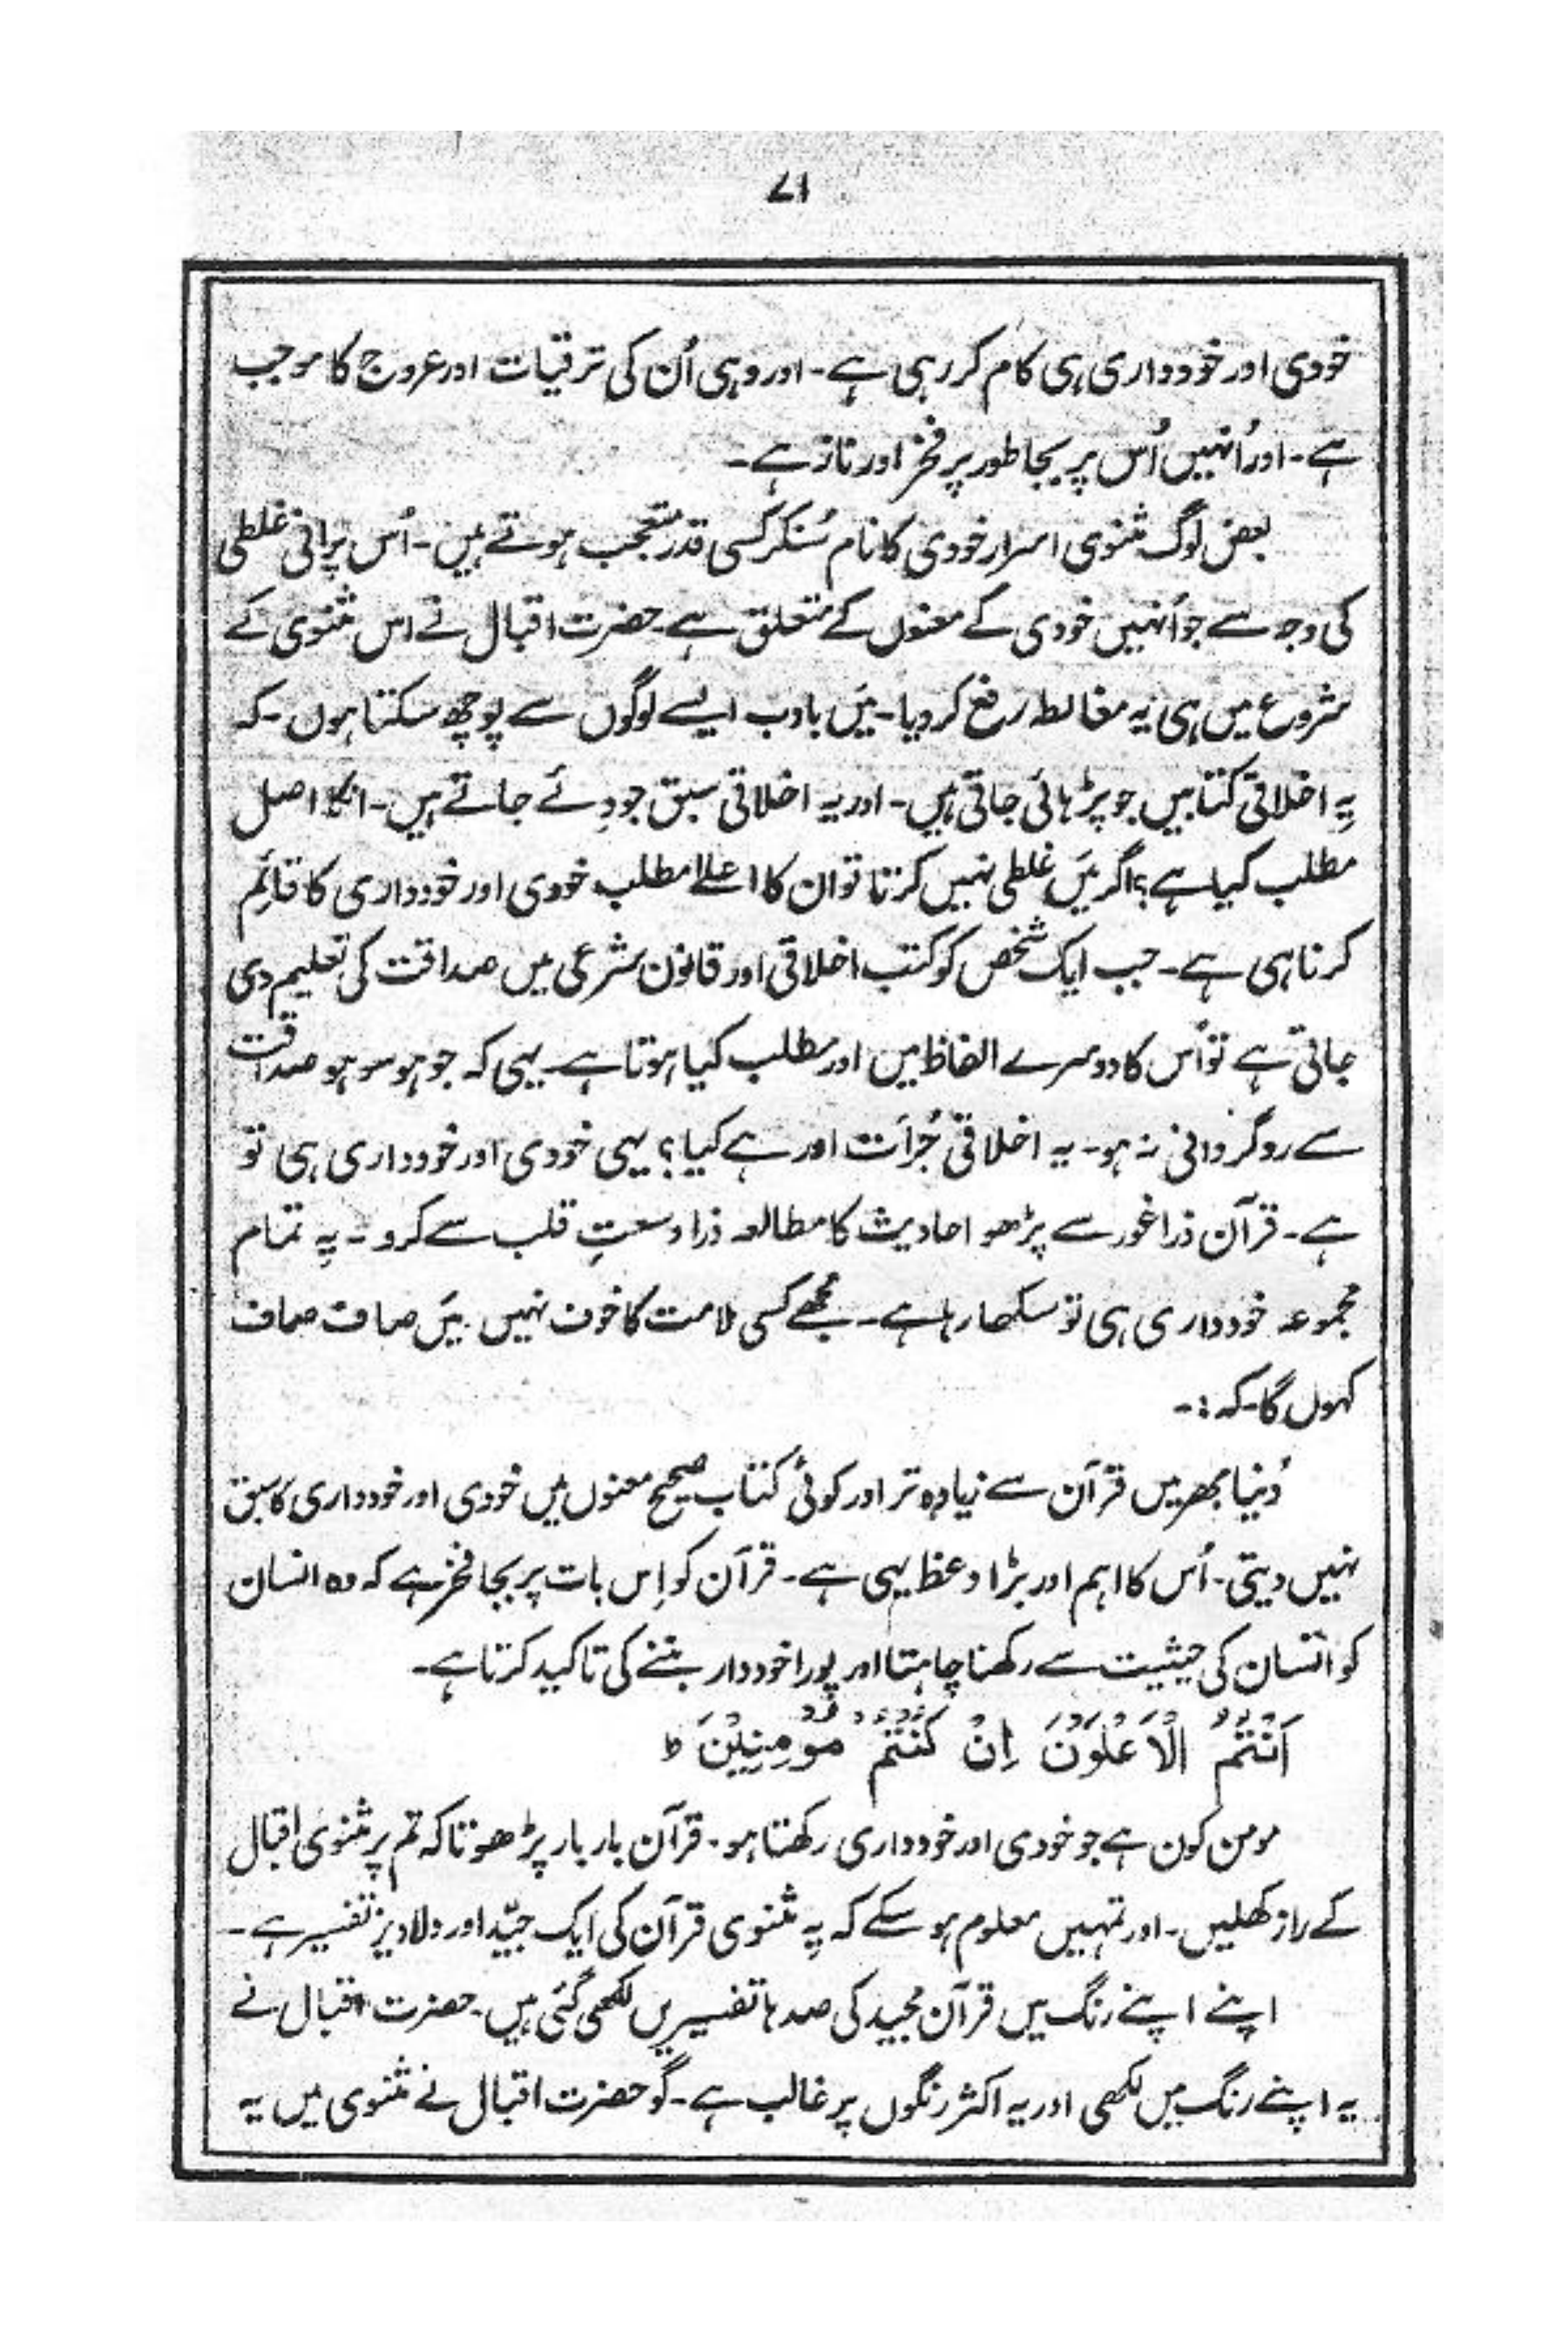 ۷۱
خودی اور خودداری ہی کام کر رہی ہے۔ اور وہی اُن کی ترقیات اور عروج کا موجب
ہے۔ اور اُنہیں اُس پر بجا طور پر فخر اور ناز ہے۔
بعض لوگ مثنوی اسرار خودی کا نام سُنکر کسی قدر متعجب ہوتے ہیں۔ اُس پرانی غلطی
کی وجہ سے جو اُنہیں خودی کے معنوں کے متعلق ہے۔ حضرتِ اقبال نے اس مثنوی کے
شروع میں ہی یہ مغالطہ رفع کر دیا۔ میَں بادب ایسے لوگوں سے پوچھ سکتا ہوں۔ کہ
یہِ اخلاقی کتابیں جو پڑہائی جاتی ہیں۔ اور یہ اخلاقی سبق جو دِئے جاتے ہیں۔ انکا اصل
مطلب کیا ہے؟ اگر میَں غلطی نہیں کرتا تو ان کا اعلےٰ مطلب خودی اور خودداری کا قائم
کرنا ہی ہے۔ جب ایک شخص کو کتب اخلاقی اور قانون شرعی میں صداقت کی تعلیم دی
جاتی ہے تو اُس کا دوسرے الفاظ میں اور مطلب کیا ہوتا ہے۔ یہی کہ جو ہو سو ہو صداقت
سے روگردانی نہ ہو۔ یہ اخلاقی جُراَت اور ہے کیا؟ یہی خودی اور خودداری ہی تو
ہے۔ قرآن ذرا غور سے پڑھو احادیث کا مطالعہ ذرا وسعتِ قلب سے کرو۔ یہِ تمام
مجموعہ خودداری ہی تو سکھا رہا ہے۔ مُجھے کسی ملامت کا خوف نہیں۔ میَں صاف صاف
کہوں گا۔ کہ :۔
دُنیا بھر میں قرآن سے زیادہ تر اور کوئی کتاب صحیح معنوں میں خودی اور خودداری کا سبق
نہیں دیتی۔ اُس کا اہم اور بڑا وعظ یہی ہے۔ قرآن کو اِس بات پر بجا فخر ہے کہ وہ انسان
کو انسان کی حیثیت سے رکھنا چاہتا اور پورا خوددار بننے کی تاکید کرتا ہے۔
اَنْتُمُ الْاَعْلَوْنَ اِنْ كُنْتُمْ مُؤْمِنِيْنَ ط
مومن کون ہے جو خودی اور خودداری رکھتا ہو۔ قرآن بار بار پڑھو تاکہ تم پر مثنوی اقبال
کے راز کھلیں۔ اور تمہیں معلوم ہو سکے کہ یہِ مثنوی قرآن کی ایک جیّد اور دلاویز تفسیر ہے۔
اپنے اپنے رنگ میں قرآن مجید کی صدہا تفسیریں لکھی گئی ہیں۔ حضرت اقبال نے
یہ اپنے رنگ میں لکھی اور یہ اکثر رنگوں پر غالب ہے۔ گو حضرت اقبال نے مثنوی میں یہ